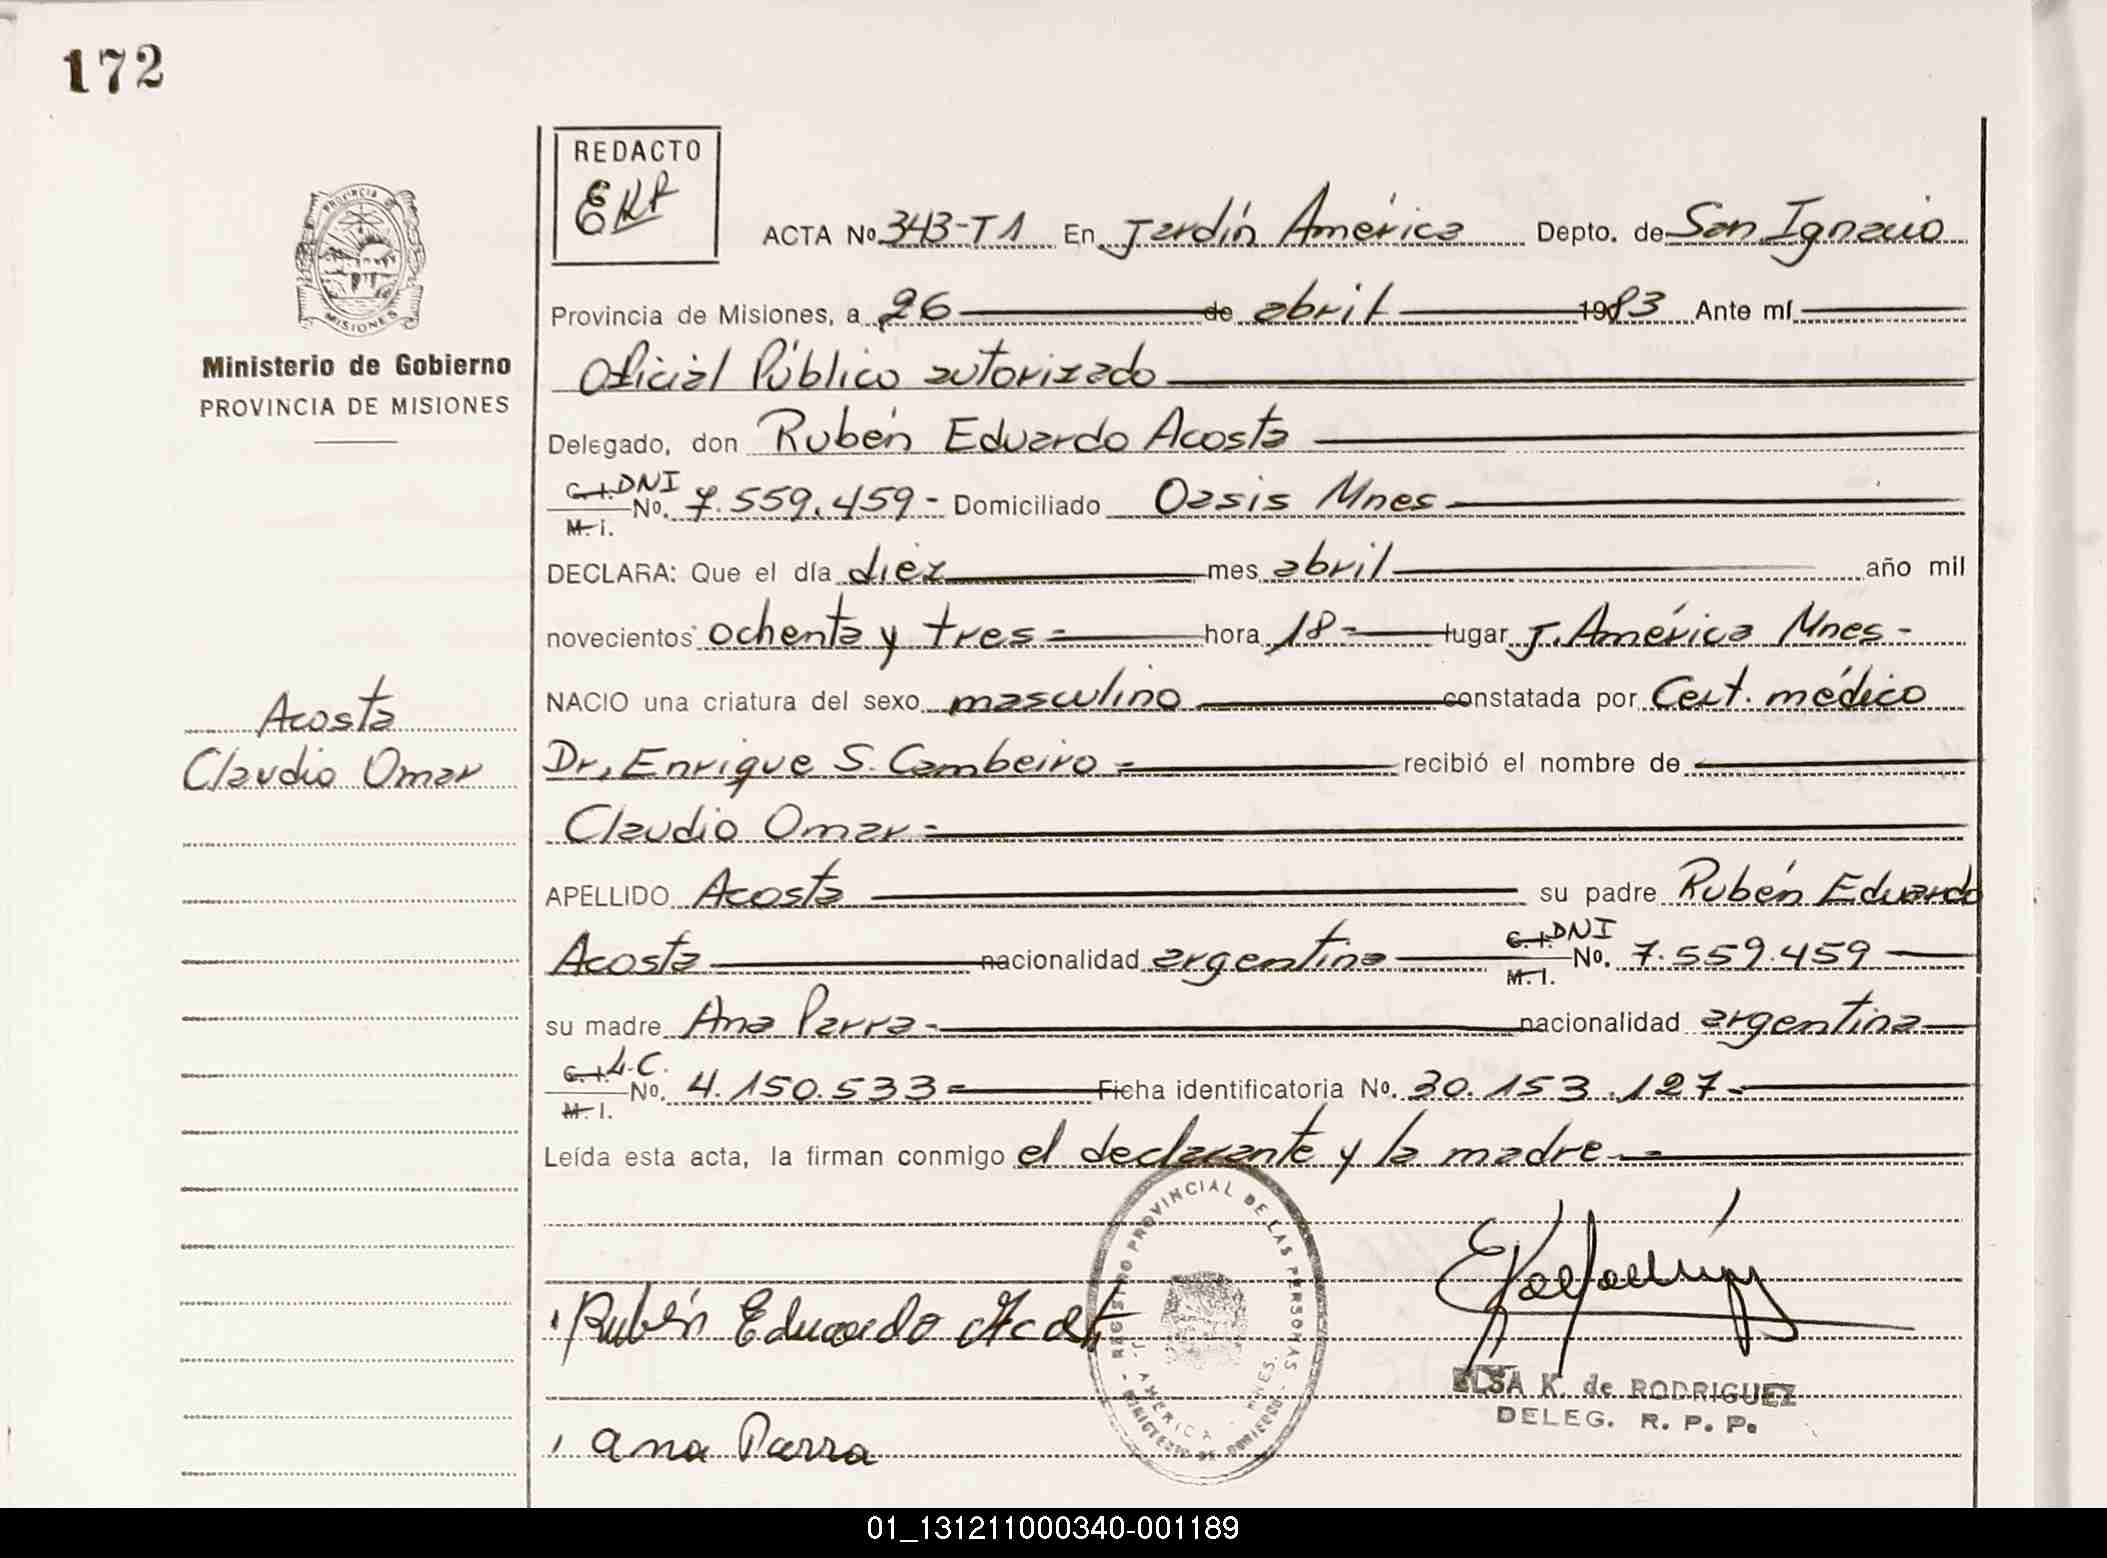 172
REDACTO
EKR
ACTA No 343-T1 En Jardín América Depto. de San Ignacio
PROVINCIA DE
MISIONES
Provincia de Misiones, a 26 de abril 1983 Ante mí
Ministerio de Gobierno
PROVINCIA DE MISIONES
Oficial Público autorizado
Delegado, don Rubén Eduardo Acosta
C.I. DNI
No. 7.559.459 - Domiciliado Oasis Mnes
M.I.
DECLARA: Que el día diez mes abril año mil
novecientos ochenta y tres = hora 18 = lugar J. América Mnes -
Acosta
Claudio Omar
NACIO una criatura del sexo masculino constatada por Cert. médico
Dr. Enrique S. Cambeiro = recibió el nombre de
Claudio Omar =
APELLIDO Acosta su padre Rubén Eduardo
Acosta nacionalidad argentina C.I. DNI
No. 7.559.459
M.I.
su madre Ana Parra - nacionalidad argentina
C.I. L.C.
No. 4.150.533 = Ficha identificatoria No. 30.153.127 -
M.I.
Leída esta acta, la firman conmigo el declarante y la madre
REGISTRO PROVINCIAL DE LAS PERSONAS
J. AMERICA - MNES.
MINISTERIO DE GOBIERNO
Rubén Eduardo Acost
ELSA K. de RODRIGUEZ
DELEG. R. P. P.
Ana Parra
01_131211000340-001189